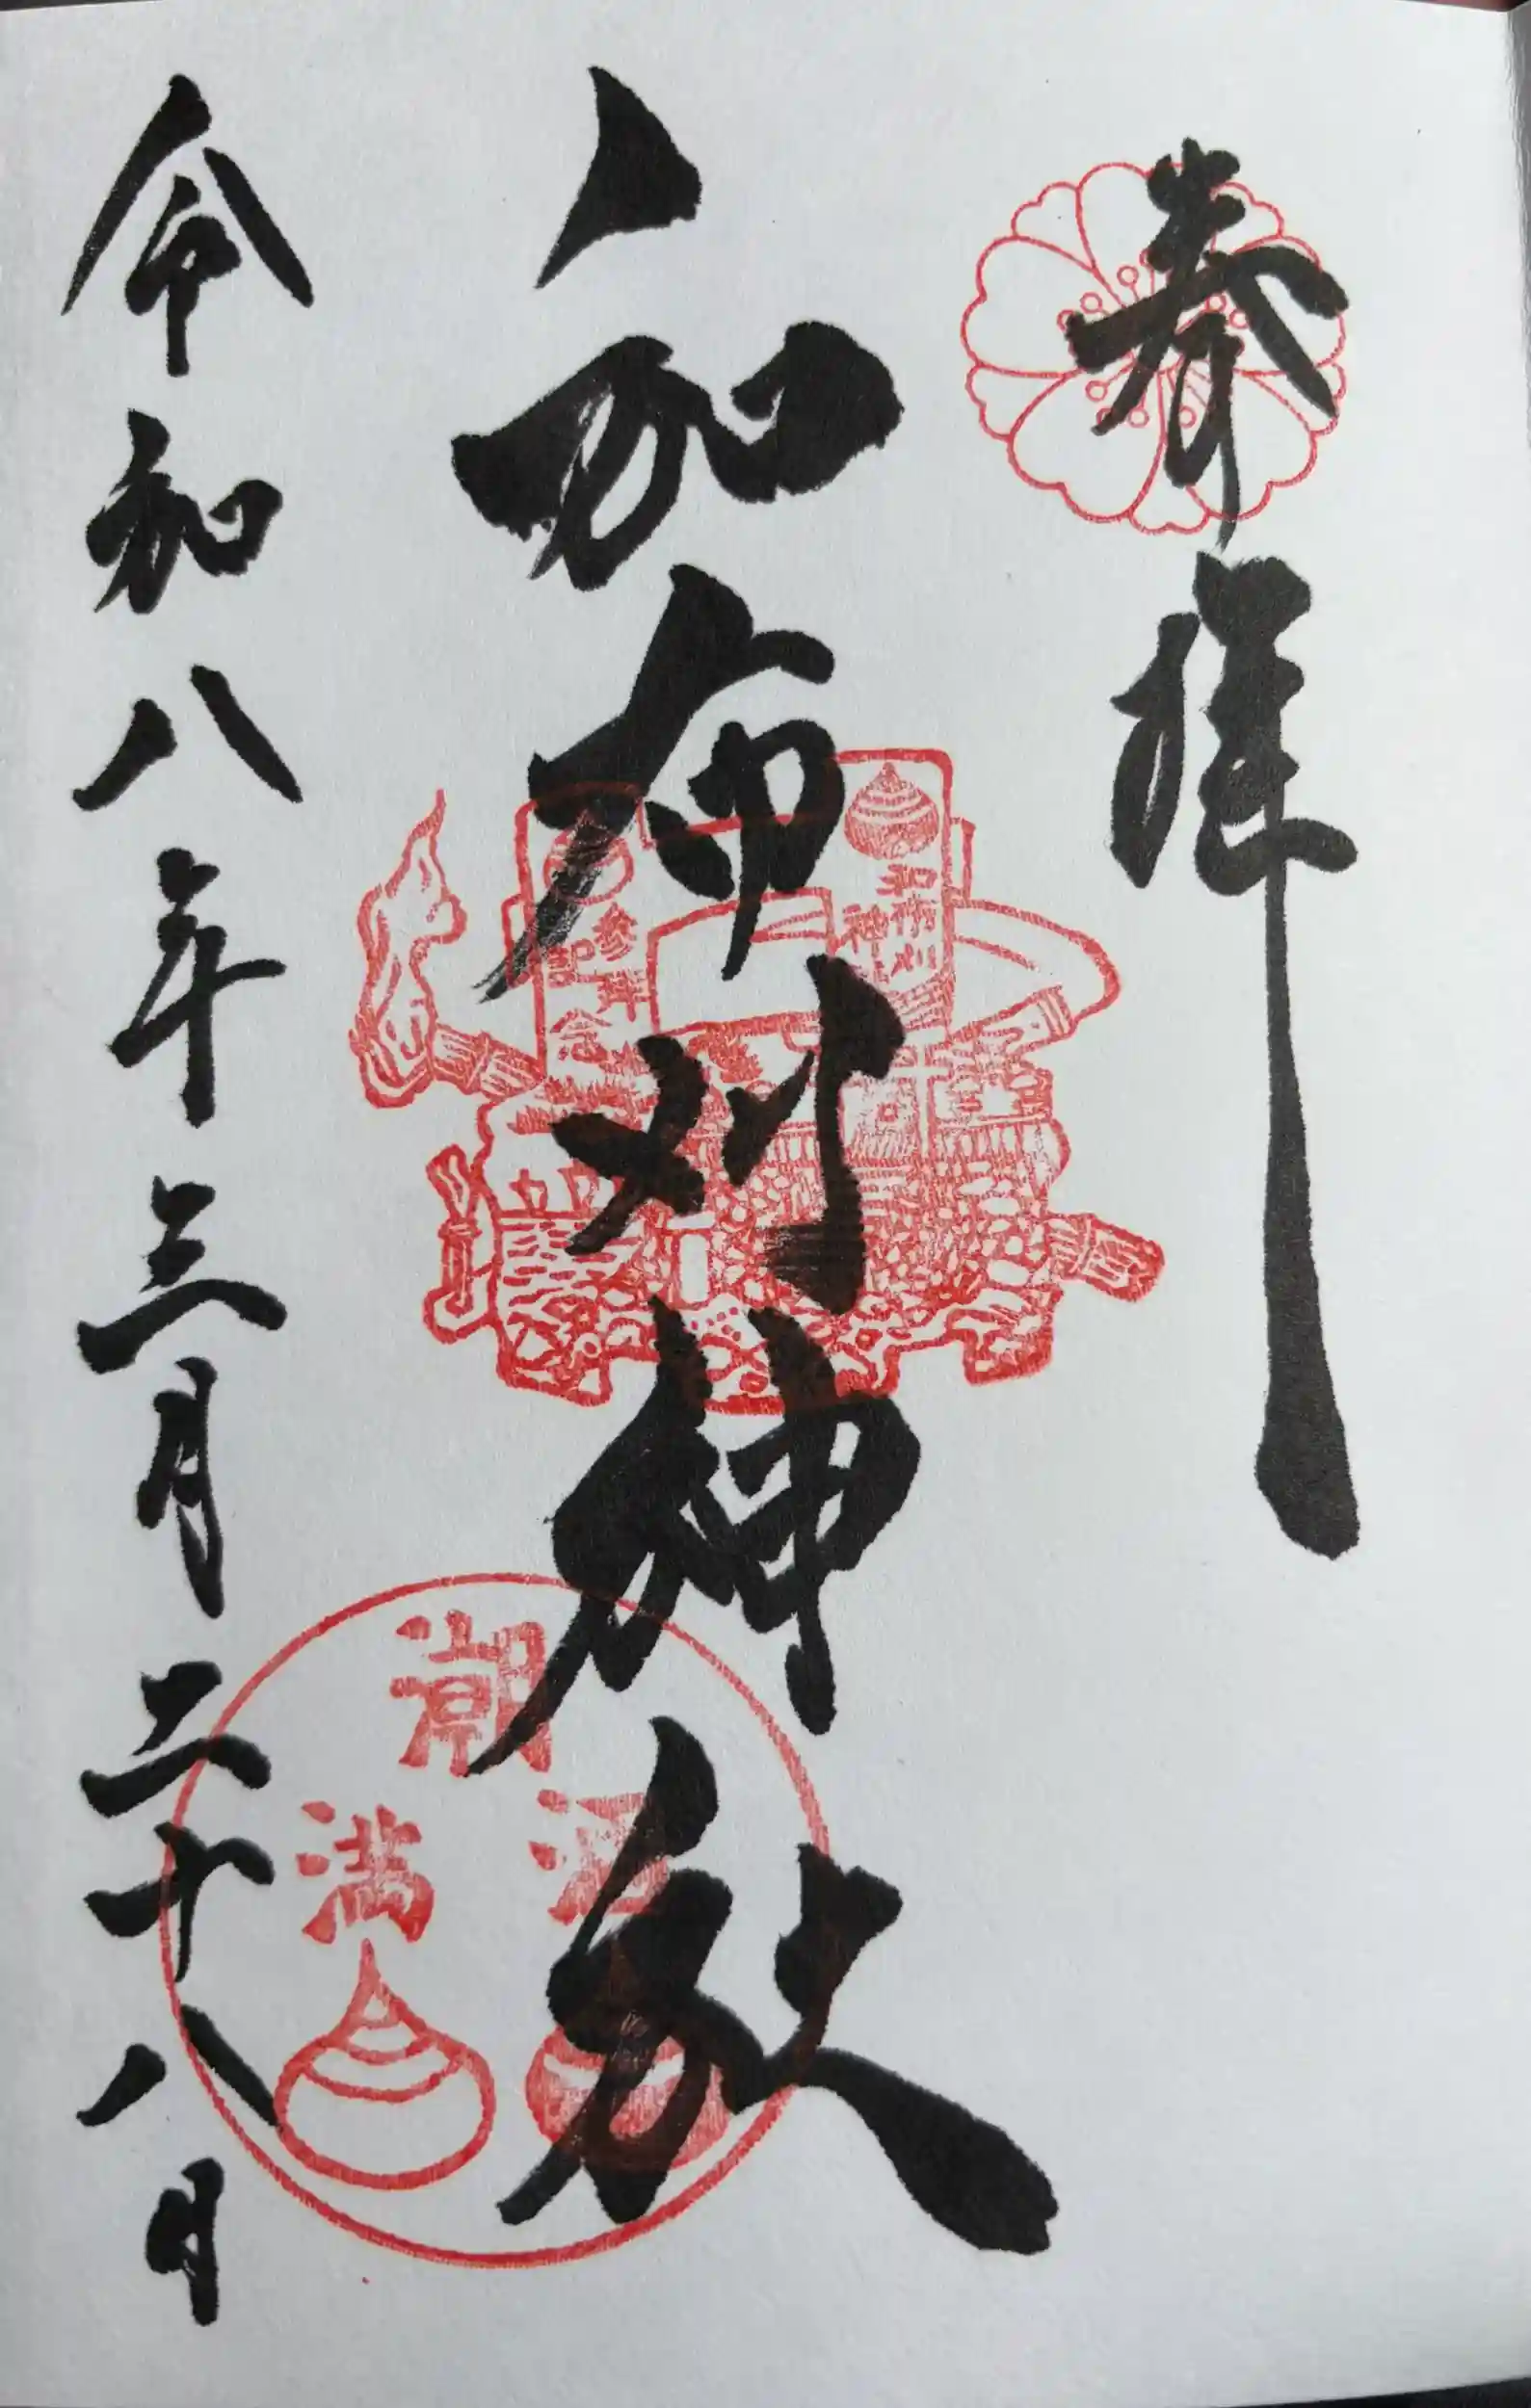 奉拝
和布刈神社
和布刈
神社
参拝
記念
潮
満
令和八年三月二十八日